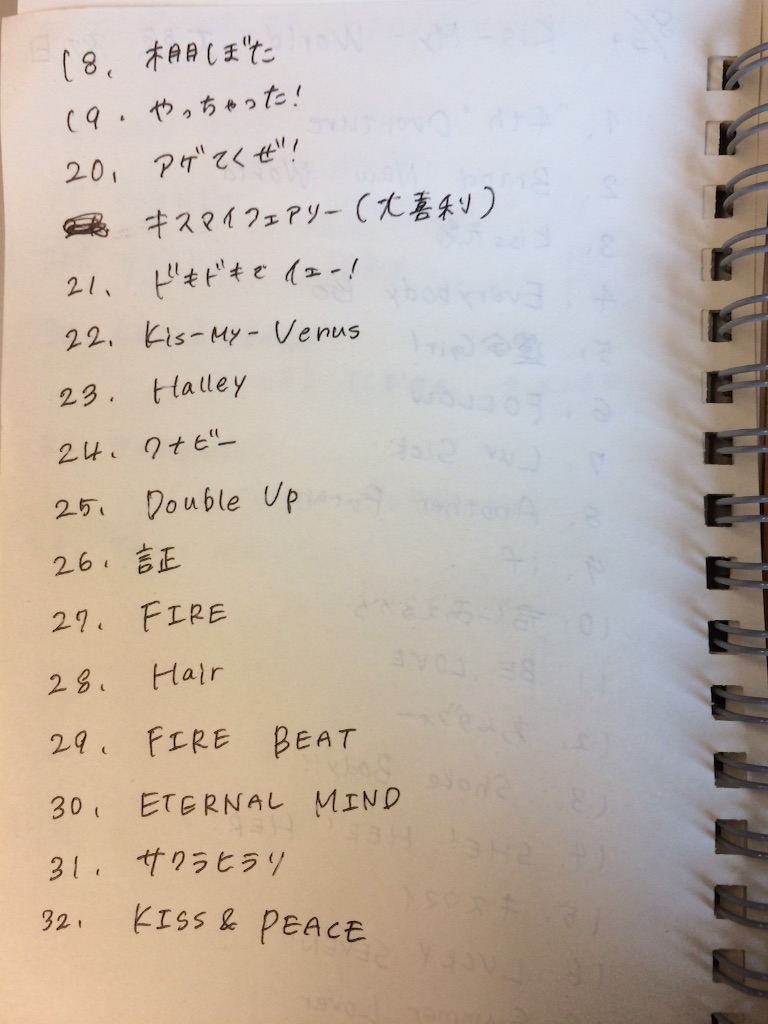 18. 棚ぼた
19. やっちゃった!
20. アゲてくぜ!
キスマイフェアリー(大喜利)
21. ドキドキでイェー!
22. Kis-My-Venus
23. Halley
24. ワナビー
25. Double Up
26. 証
27. FIRE
28. Hair
29. FIRE BEAT
30. ETERNAL MIND
31. サクラヒラリ
32. KISS & PEACE